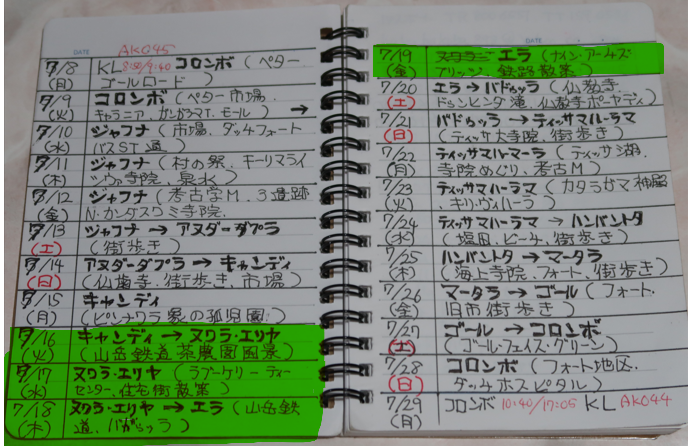 DATE
AK045
7/8 KL 8:50/9:40 コロンボ (ペター
(月) ゴールロード)
7/9 コロンボ (ペター市場、
(火) キャラニア、ガンガラマT、モール) →
7/10 ジャフナ (市場、ダッチフォート
(水) バスST通)
7/11 ジャフナ (村の祭、キーリマライ
(木) 寺院、泉水)
7/12 ジャフナ (考古学M、3遺跡
(金) N・カンダスワミ寺院、
7/13 ジャフナ → アヌダーダプラ
(土) (街歩き)
7/14 アヌダーダプラ → キャンディ
(日) (仏歯寺、街歩き、市場)
7/15 キャンディ
(月) (ピンナワラ象の孤児園)
7/16 キャンディ → ヌワラ・エリヤ
(火) (山岳鉄道茶農園風景)
7/17 ヌワラ・エリヤ (ラブーケリーティー
(水) センター、住宅街散策)
7/18 ヌワラ・エリヤ → エラ (山岳鉄
(木) 道、バドゥッラ)
DATE
7/19 エラ (ナイン・アーチズ
(金) ブリッジ、鉄路散策)
7/20 エラ → バドゥッラ (仏教寺、
(土) ドゥンヒンダ滝、仏教寺ボーヤディ)
7/21 バドゥッラ → ティッサマハーラマ
(日) (ティッサ大寺院、街歩き)
7/22 ティッサマハーマーラ (ティッサ湖、
(月) 寺院めぐり、考古M)
7/23 ティッサマハーラマ (カタラガマ神殿
(火) 、キリ・ヴィハーラ)
7/24 ティッサマハーラマ → ハンバントタ
(水) (塩田、ビーチ、街歩き)
7/25 ハンバントタ → マータラ
(木) (海上寺院、フォート、街歩き)
7/26 マータラ → ゴール (フォート・
(金) 旧市街歩き)
7/27 ゴール → コロンボ
(土) (ゴールフェイス・グリーン)
7/28 コロンボ (フォート地区、
(日) ダッチホスピタル)
7/29 コロンボ 10:40/17:05 KL AK044
(月)